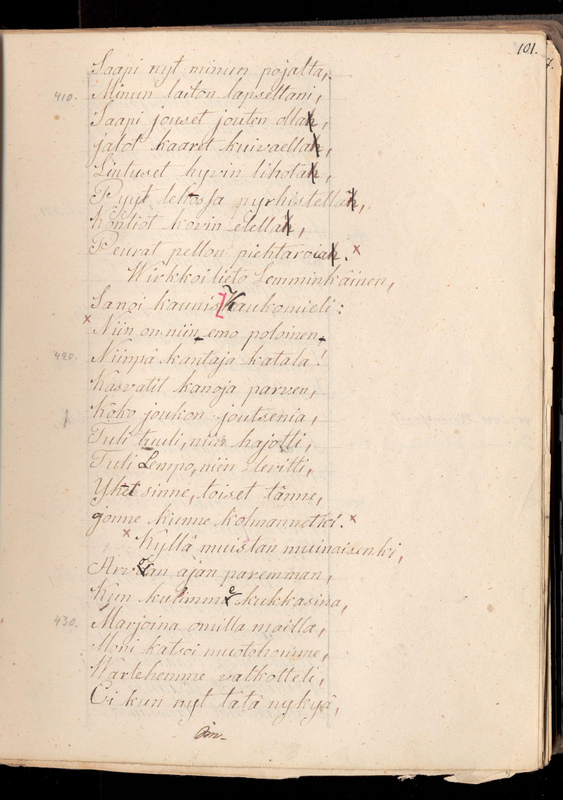 101.
Saapi nyt minun pojalta,
410. Minun laiton lapseltani,
Saapi jouset jouten ollah,
jalot kaaret kuivaellah,
Lintuset hyvin lihotah,
Pyyt lehossa pyrhistelläh,
Kontiot korin elelläh,
Peurat pellon piehtaroiah. x
Wirkkoi lieto Lemminkäinen,
Sanoi kaunis Kaukomieli:
x Niin on niin emo poloinen
420. Niinpä kantaja katala!
Kasvatit kanoja parven,
Koko joukon joutsenia,
Tuli tuuli, niin hajotti,
Tuli Lempo, niin levitti,
Yhet sinne, toiset tänne,
jonne kunne kolmannetki. x
x Kyllä muistan muinaisenki,
ajan paremman,
Kun kulimme kukkasina,
430. Marjoina omilla mailla,
Moni katsoi muotohomme,
Wartehemme valkotteli,
Ei kun nyt tätä nykyä,